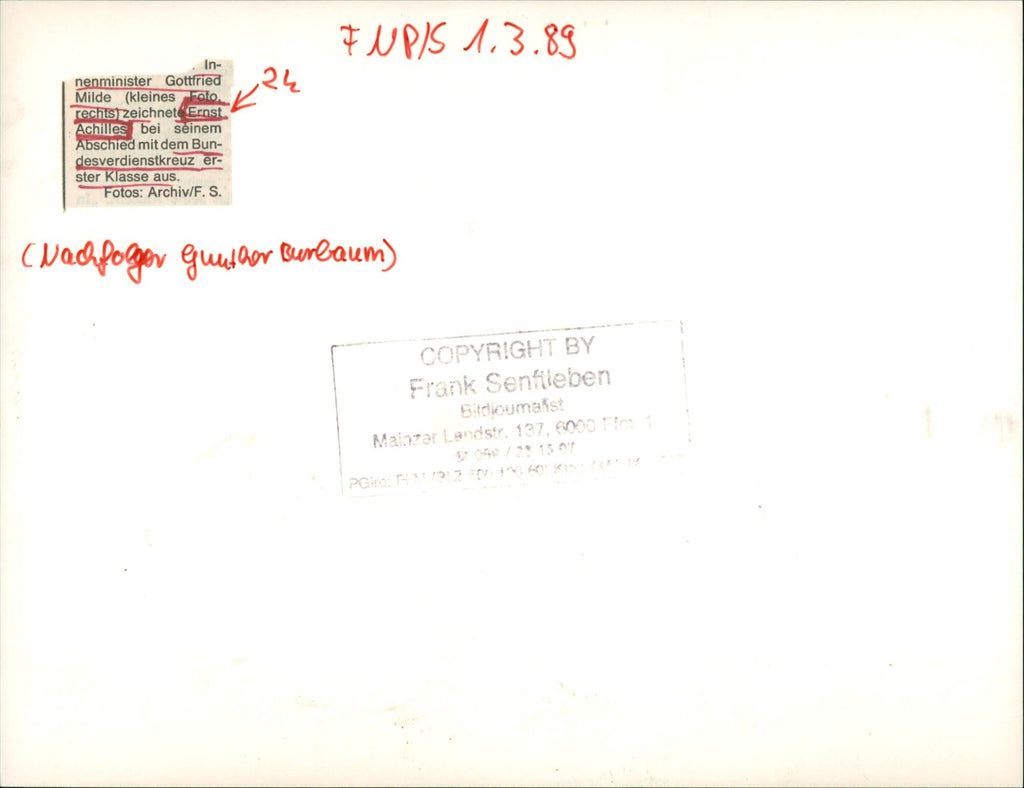 FNP/S 1.3.89
In-
nenminister Gottfried
Milde (kleines Foto,
rechts) zeichnete Ernst
Achilles bei seinem
Abschied mit dem Bun-
desverdienstkreuz er-
ster Klasse aus.
Fotos: Archiv/F. S.
24
(Nachfolger Gunther Burbaum)
COPYRIGHT BY
Frank Senftleben
Bildjournalist
Mainzer Landstr. 137, 6000 Ffm. 1
PGiro: